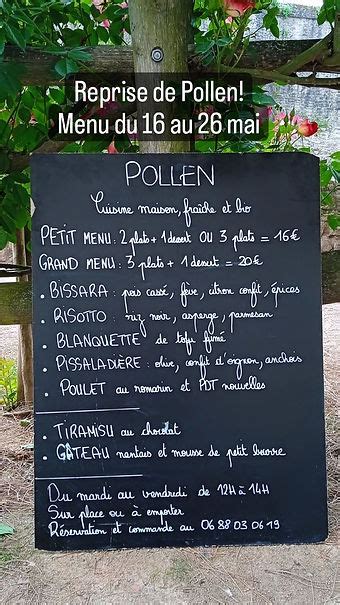 Reprise de Pollen!
Menu du 16 au 26 mai
POLLEN
Cuisine maison, fraîche et bio
PETIT MENU : 2 plats + 1 dessert OU 3 plats = 16€
GRAND MENU : 3 plats + 1 dessert = 20€
• BISSARA : pois cassé, fève, citron confit, épices
• RISOTTO : riz noir, asperge, parmesan
• BLANQUETTE de tofu fumé
• PISSALADIÈRE : olive, confit d'oignon, anchois
• POULET au romarin et PDT nouvelles
• TIRAMISU au chocolat
• GÂTEAU nantais et mousse de petit beurre
Du mardi au vendredi de 12H à 14H
Sur place ou à emporter
Réservation et commande au 06 88 03 06 19